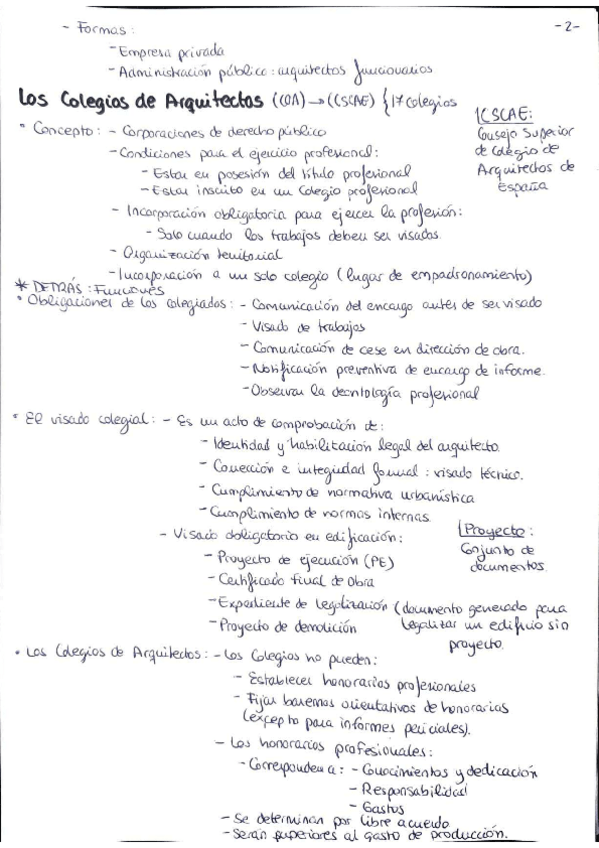 - Formas:
-2-
- Empresa privada
- Administración público: arquitectos funcionarios
Los Colegios de Arquitectos (COA) → (CSCAE) { 17 colegios
CSCAE:
Consejo Superior
de Colegio de
Arquitectos de
España
• Concepto: - Corporaciones de derecho público
- Condiciones para el ejercicio profesional:
- Estar en posesión del título profesional
- Estar inscrito en un Colegio profesional
- Incorporación obligatoria para ejercer la profesión:
- Solo cuando los trabajos deben ser visados.
- Organización territorial
- Incorporación a un solo colegio (lugar de empadronamiento)
* DETRÁS: Funciones
• Obligaciones de los colegiados: - Comunicación del encargo antes de ser visado
- Visado de trabajos
- Comunicación de cese en dirección de obra.
- Notificación preventiva de encargo de informe.
- Observar la deontología profesional
• El visado colegial: - Es un acto de comprobación de:
- Identidad y habilitación legal del arquitecto.
- Corrección e integridad formal: visado técnico.
- Cumplimiento de normativa urbanística
- Cumplimiento de normas internas.
- Visado obligatorio en edificación:
Proyecto:
Conjunto de
documentos.
- Proyecto de ejecución (PE)
- Certificado final de obra
- Expediente de legalización (documento generado para
legalizar un edificio sin
proyecto.
- Proyecto de demolición
• Los Colegios de Arquitectos: - Los Colegios no pueden:
- Establecer honorarios profesionales
- Fijar baremos orientativos de honorarios
(excepto para informes periciales).
- Los honorarios profesionales:
- Corresponden a: - Conocimientos y dedicación
- Responsabilidad
- Gastos
- Se determinan por libre acuerdo
- Serán superiores al gasto de producción.